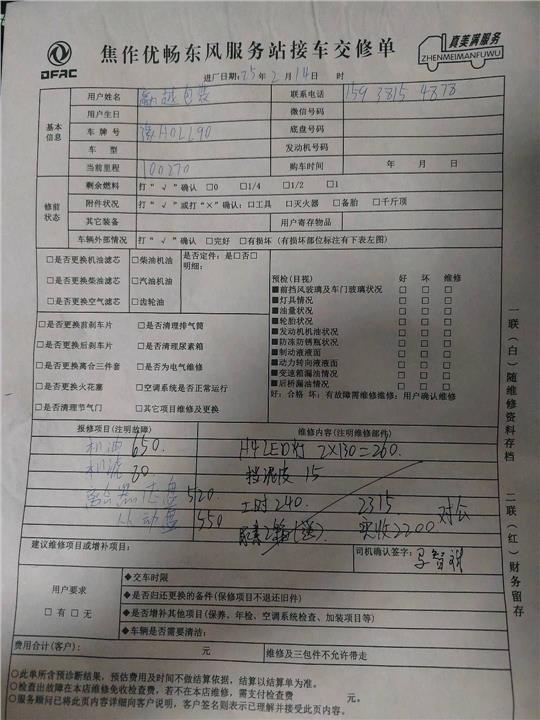 DFAC
焦作优畅东风服务站接车交修单
真美满服务
ZHENMEIMANFUWU
进厂日期：25年2月14日 时
基本信息
用户姓名 联系电话 159 3815 4878
用户生日 微信号码
车牌号 豫H0LL90 底盘号码
车型 发动机号码
当前里程 100270 购车时间 年 月 日
修前状态
剩余燃料 打“√”确认 □0 □1/4 □1/2 □1
附件状况 打“√”或打“×”确认：□工具 □灭火器 □备胎 □千斤顶
其它装备 用户寄存物品
车辆外部情况 打“√”确认 □完好 □有损坏（有损坏部位标注有下表左图）
□是否更换机油滤芯 □柴油机油 是否定件：是□否□
明细：
□是否更换柴油滤芯 □汽油机油
□是否更换空气滤芯 □齿轮油
□是否更换前刹车片 □是否清理排气筒
□是否更换后刹车片 □是否清理尿素箱
□是否更换离合三件套 □是否为电气维修
□是否更换火花塞 □空调系统是否正常运行
□是否清理节气门 □其它项目维修及更换
预检（目视） 好 坏 维修
■前挡风玻璃及车门玻璃状况 □ □ □
■灯具情况 □ □ □
■油量状况 □ □ □
■轮胎状况 □ □ □
■发动机机油状况 □ □ □
■防冻防锈瓶状况 □ □ □
■制动液液面 □ □ □
■动力转向液液面 □ □ □
■变速箱漏油情况 □ □ □
■后桥漏油情况 □ □ □
好：合格 坏：有故障需维修维修：用户确认维修
报修项目（注明故障） 维修内容（注明维修部件）
机油 650. H4LED灯 2X130=260.
机滤 80 挡泥皮 15
520 工时 240. 2315
从动盘 550 实收2200 对公
建议维修项目或增补项目： 司机确认签字：
用户要求
□有□无
◆交车时限
◆是否归还更换的备件（保修项目不退还旧件）
◆是否增补其他项目（保养、年检、空调系统检查、加装项目等）
◆车辆是否需要清洁：
费用合计（客户）： 元 维修及三包件不允许带走
○此单所含预诊断结果，预估费用及时间不做结算依据，结算以结算单为准。
○检查出故障在本店维修免收检查费，若不在本店维修，需支付检查费 元。
○服务顾问已将此页内容详细向客户说明，客户签名则表示已理解并接受此页内容。
一联（白）随维修资料存档
二联（红）财务留存